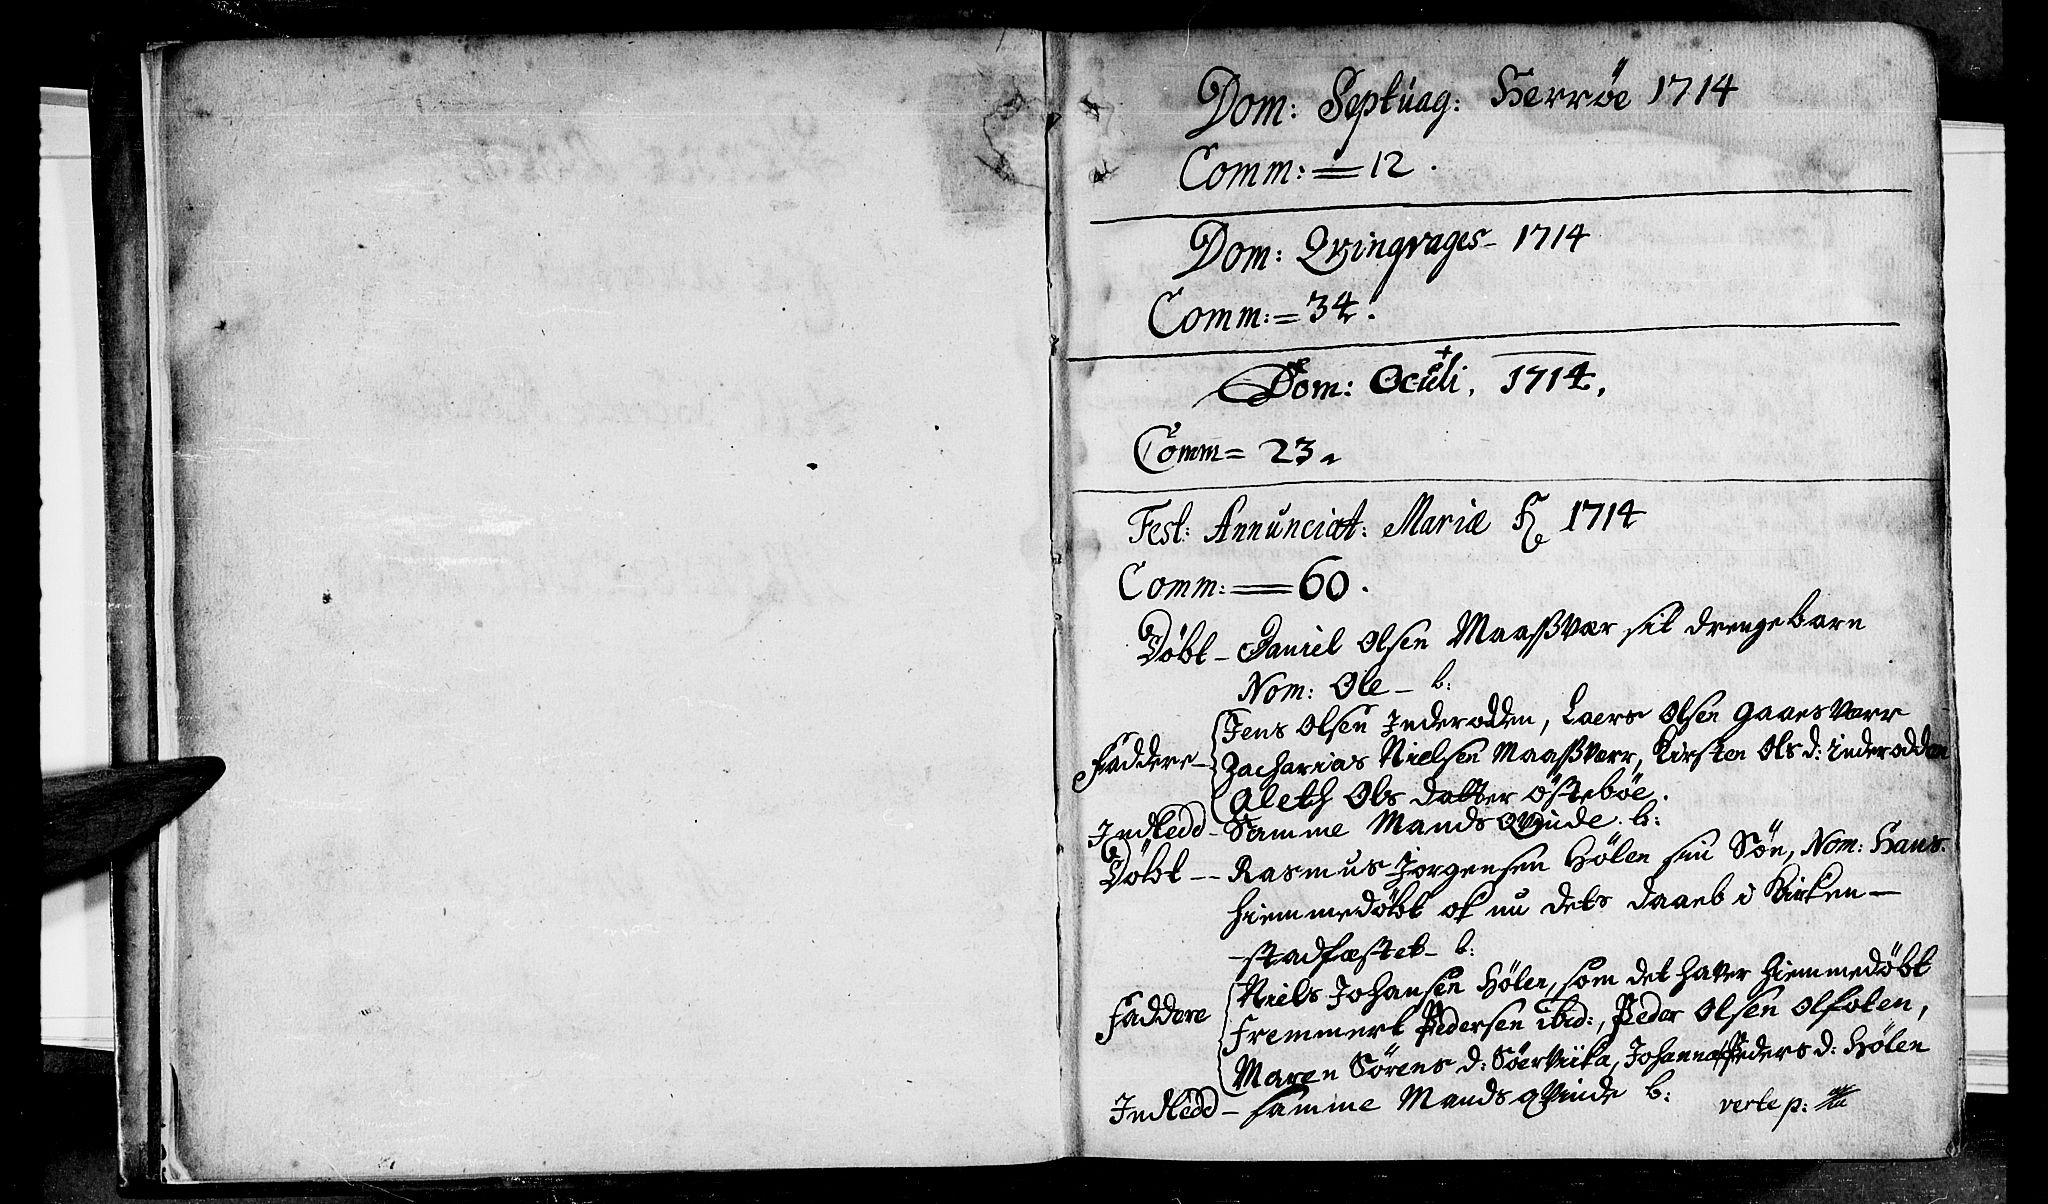 Dom: Septuag: Herröe 1714
Comm: = 12.
Dom: Qvinqvages- 1714
Comm: = 34.
Dom: Oculi, 1714,
Comm = 23.
Fest: Annunciat: Mariæ 1714
Comm: = 60.
Döbt - Daniel Olsen Maaßvær sit drengebarn
Nom: Ole - b:
Jens Olsen Inderodden, Laers Olsen Gaaesværr
Faddere - Zacharias Nielsen Maaßværr, Kirsten Ols d: inderodden
Aleth Ols datter östeböe.
Indledd - Samme Mands Qvinde. b:
Döbt -- Rasmus Jorgensen Hölen sin Sön, Nom: Hans.
hiemmedöbt ok nu dets daaeb i Kirken -
stadfæstet - b:
Niels Johansen Hölen, som det haver hiemmedöbt
Faddere Fremmert Pedersen ibid:, Peder Olsen Olfoten,
Maren Sörens d: Söerviika, Johanna Peders d: Hölen
Indledd - samme Mands qvinde b: verte p: